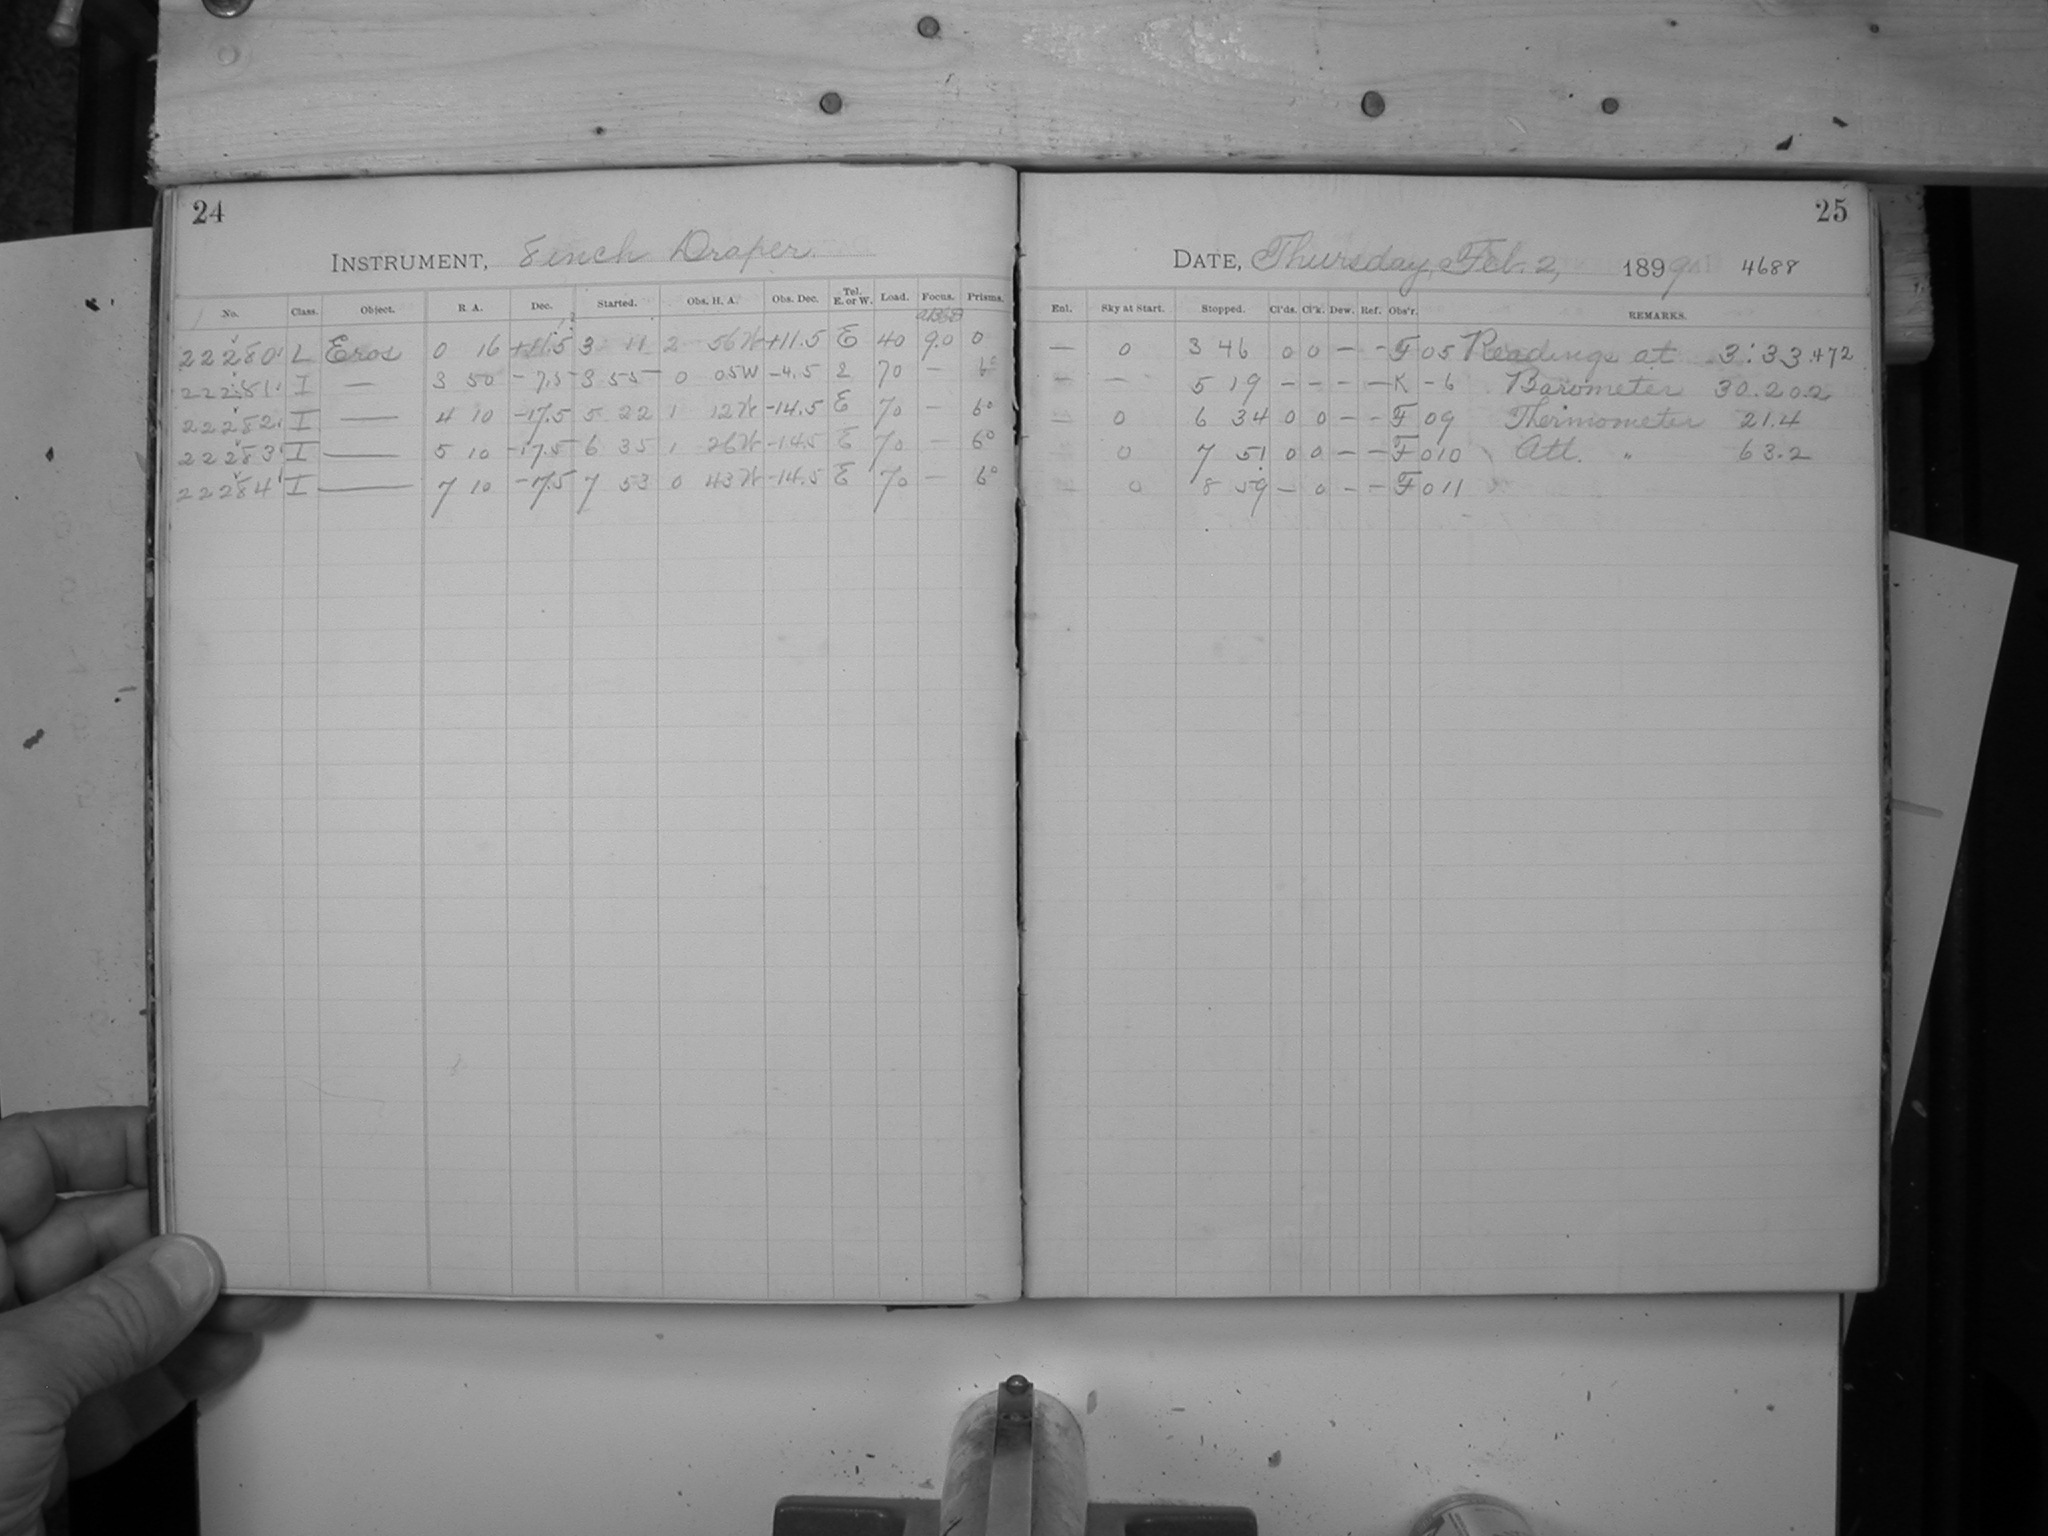 24
INSTRUMENT, 8 inch Draper.
No. Class. Object. R. A. Dec. Started. Obs. H. A. Obs. Dec. Tel. E. or W. Load. Focus. Prisms.
22280 L Eros 0 16 +11.5 3 11 2 56 W +11.5 E 40 9.0 0
22281 I — 3 50 -7.5 3 55 0 05 W -4.5 E 70 — 6°
22282 I — 4 10 -17.5 5 22 1 12 W -14.5 E 70 — 6°
22283 I — 5 10 -17.5 6 35 1 26 W -14.5 E 70 — 6°
22284 I — 7 10 -17.5 7 53 0 43 W -14.5 E 70 — 6°
25
DATE, Thursday, Feb. 2, 1899 4688
Enl. Sky at Start. Stopped. Cl'ds. Cl'k. Dew. Ref. Obs'r. REMARKS.
— 0 3 46 0 0 — — F 05 Readings at 3:33 .472
— — 5 19 — — — — K -6 Barometer 30.202
— 0 6 34 0 0 — — F 09 Thermometer 21.4
— 0 7 51 0 0 — — F 010 Att. " 63.2
— 0 8 59 — 0 — — F 011